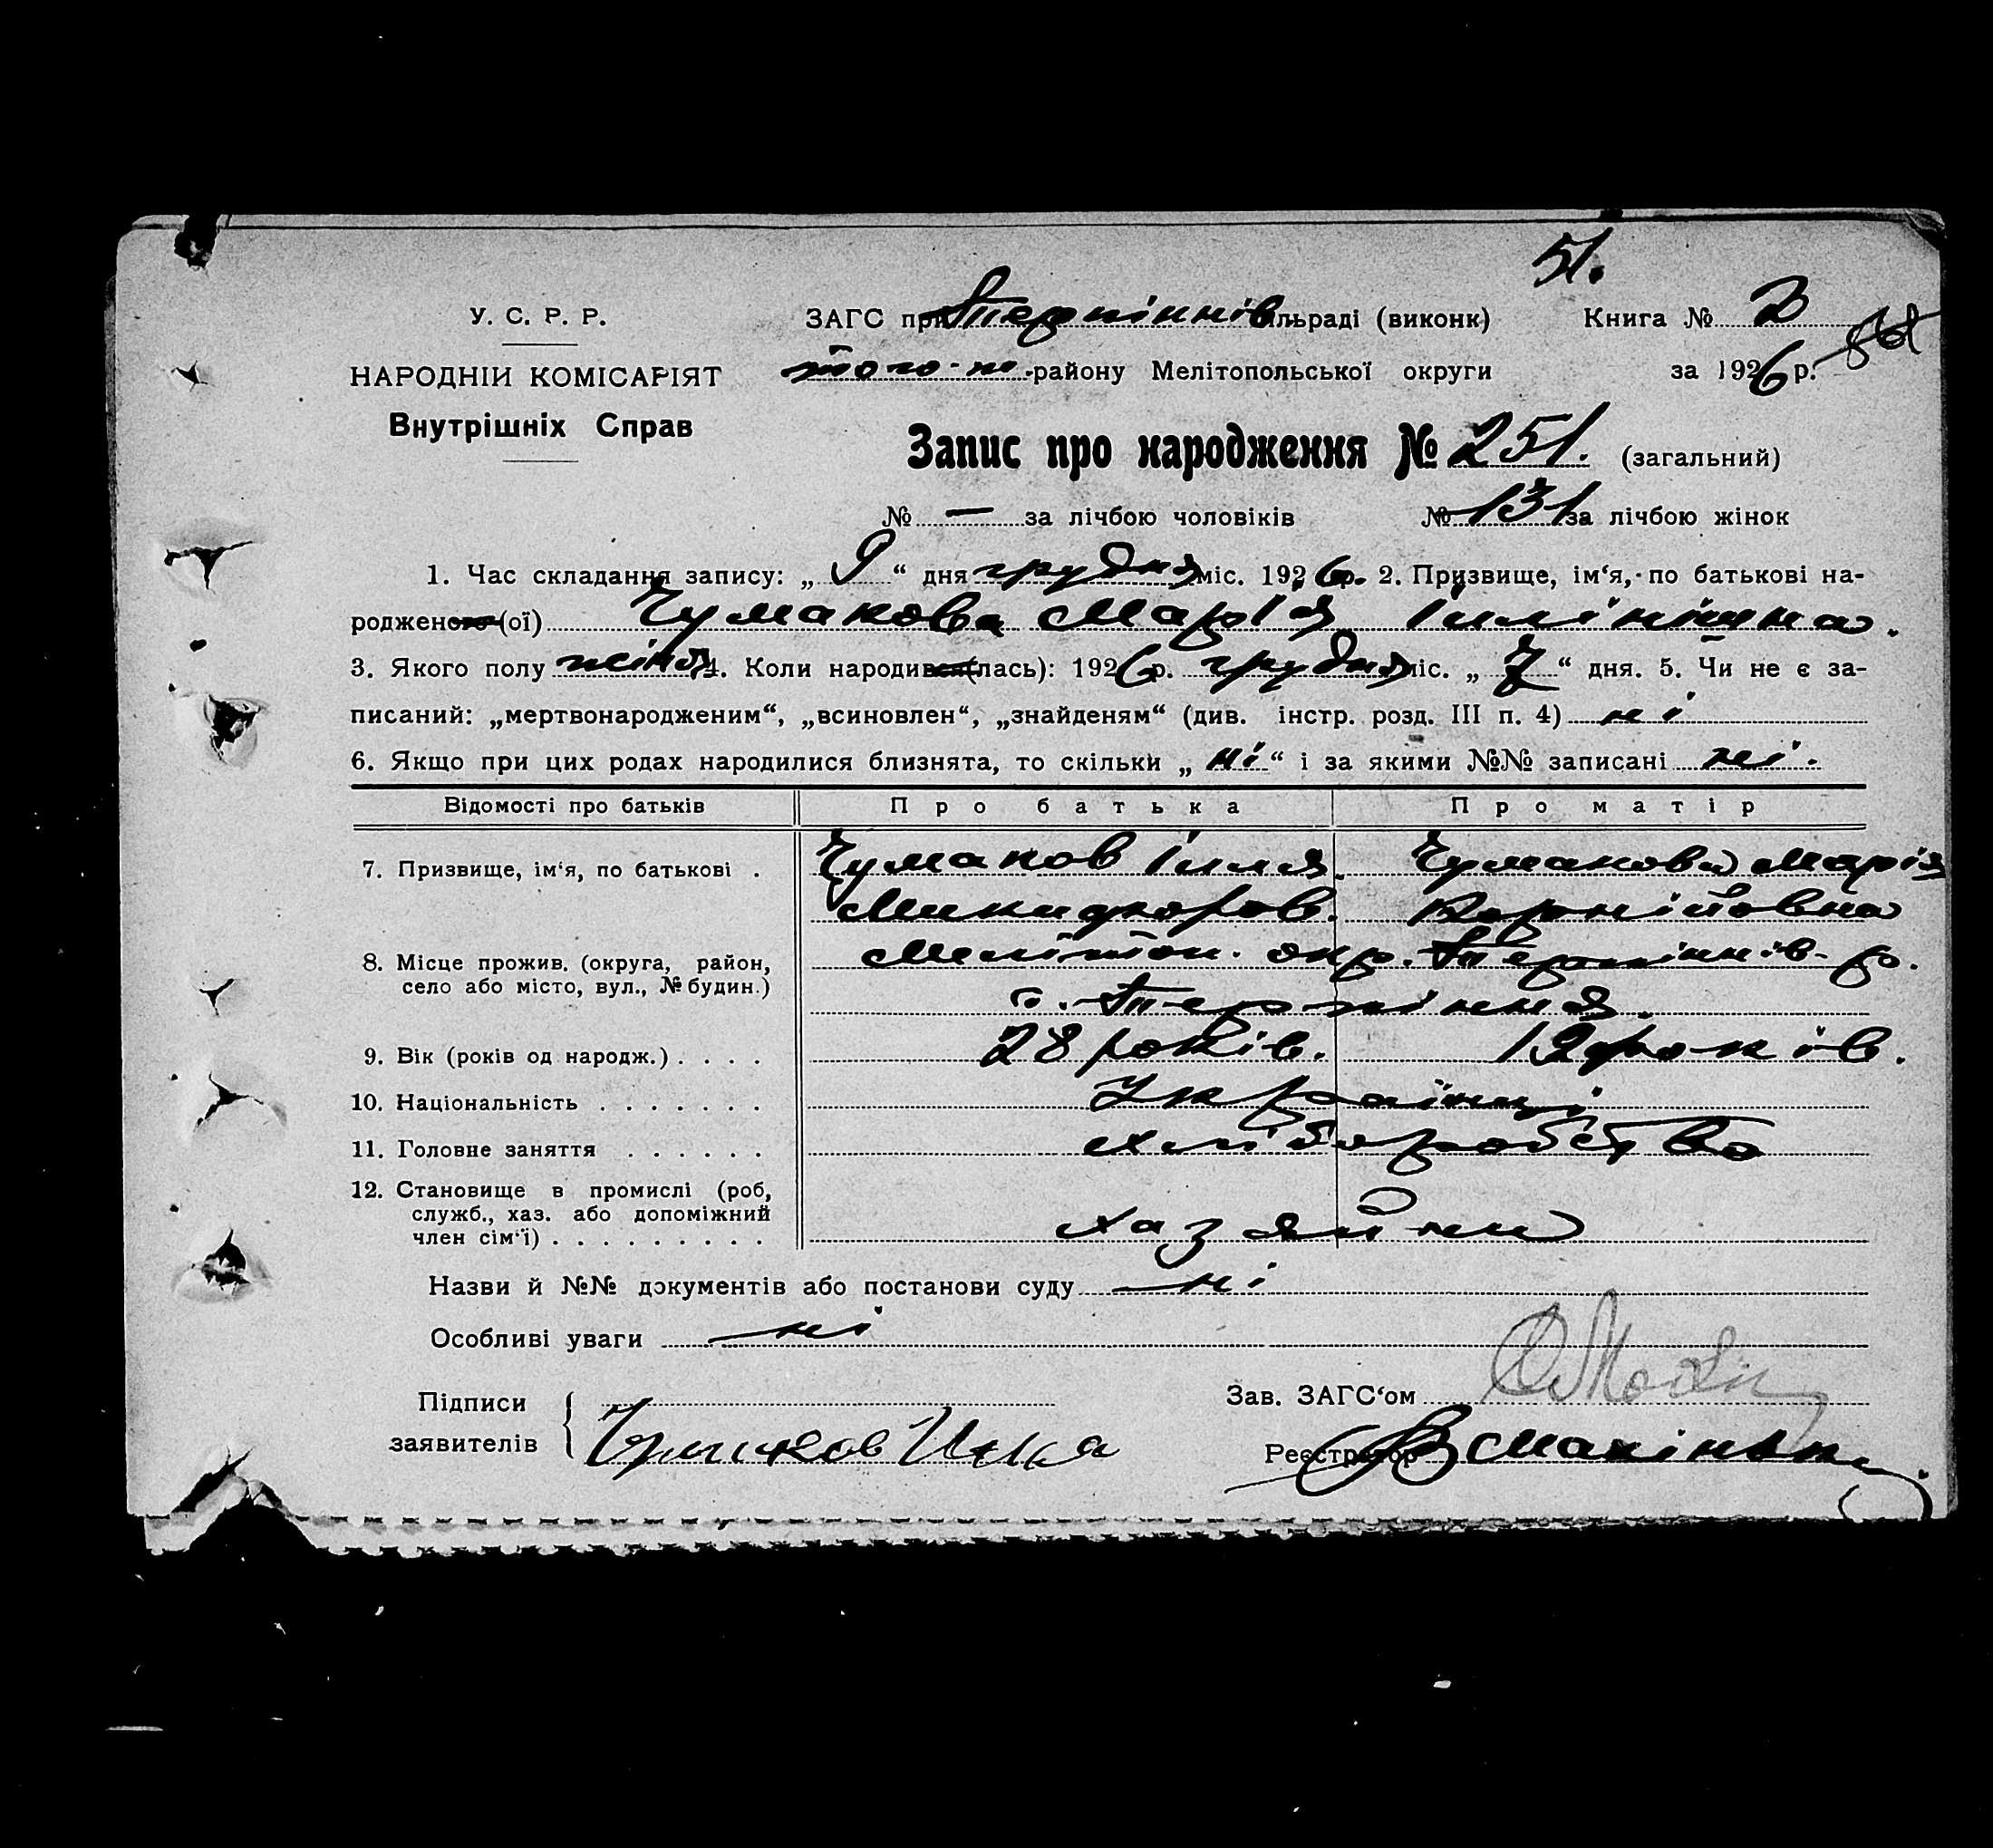 51.
У. С. Р. Р.
ЗАГС при Терпіннів ільраді (виконк)
Книга № 2
НАРОДНІЙ КОМІСАРІЯТ
того-ж району Мелітопольської округи
за 1926 р.
Внутрішніх Справ
Запис про народження № 251. (загальний)
№ — за лічбою чоловіків № 131 за лічбою жінок
1. Час складання запису: „ 9 “ дня грудня міс. 1926 р. 2. Призвище, ім‘я, по батькові на-
родженого (ої) Чумакова Марія
3. Якого полу 4. Коли народився (лась): 1926 р. грудня міс. „ 7 “ дня. 5. Чи не є за-
писаний: „мертвонародженим“, „всиновлен“, „знайденям“ (див. інстр. розд. III п. 4) ні
6. Якщо при цих родах народилися близнята, то скільки „ ні “ і за якими №№ записані ні.
Відомості про батьків
Про батька
Про матір
7. Призвище, ім‘я, по батькові .
Чумаков Ілля
Чумакова Марія
Микифоров.
Корнійовна
8. Місце прожив. (округа, район,
село або місто, вул., № будин.)
Мелітоп. окр. Терпіннів. р.
с. Терпіння.
9. Вік (років од народж.) . . . .
28 років.
19 років.
10. Національність . . . . . . .
Українці
11. Головне заняття . . . . . .
хліборобство
12. Становище в промислі (роб,
служб., хаз. або допоміжний
член сім‘ї) . . . . . . . . .
хазяйни
Назви й №№ документів або постанови суду ні
Особливі уваги ні
Підписи
заявителів
Чумаков Илья
Зав. ЗАГС‘ом
Реєстратор